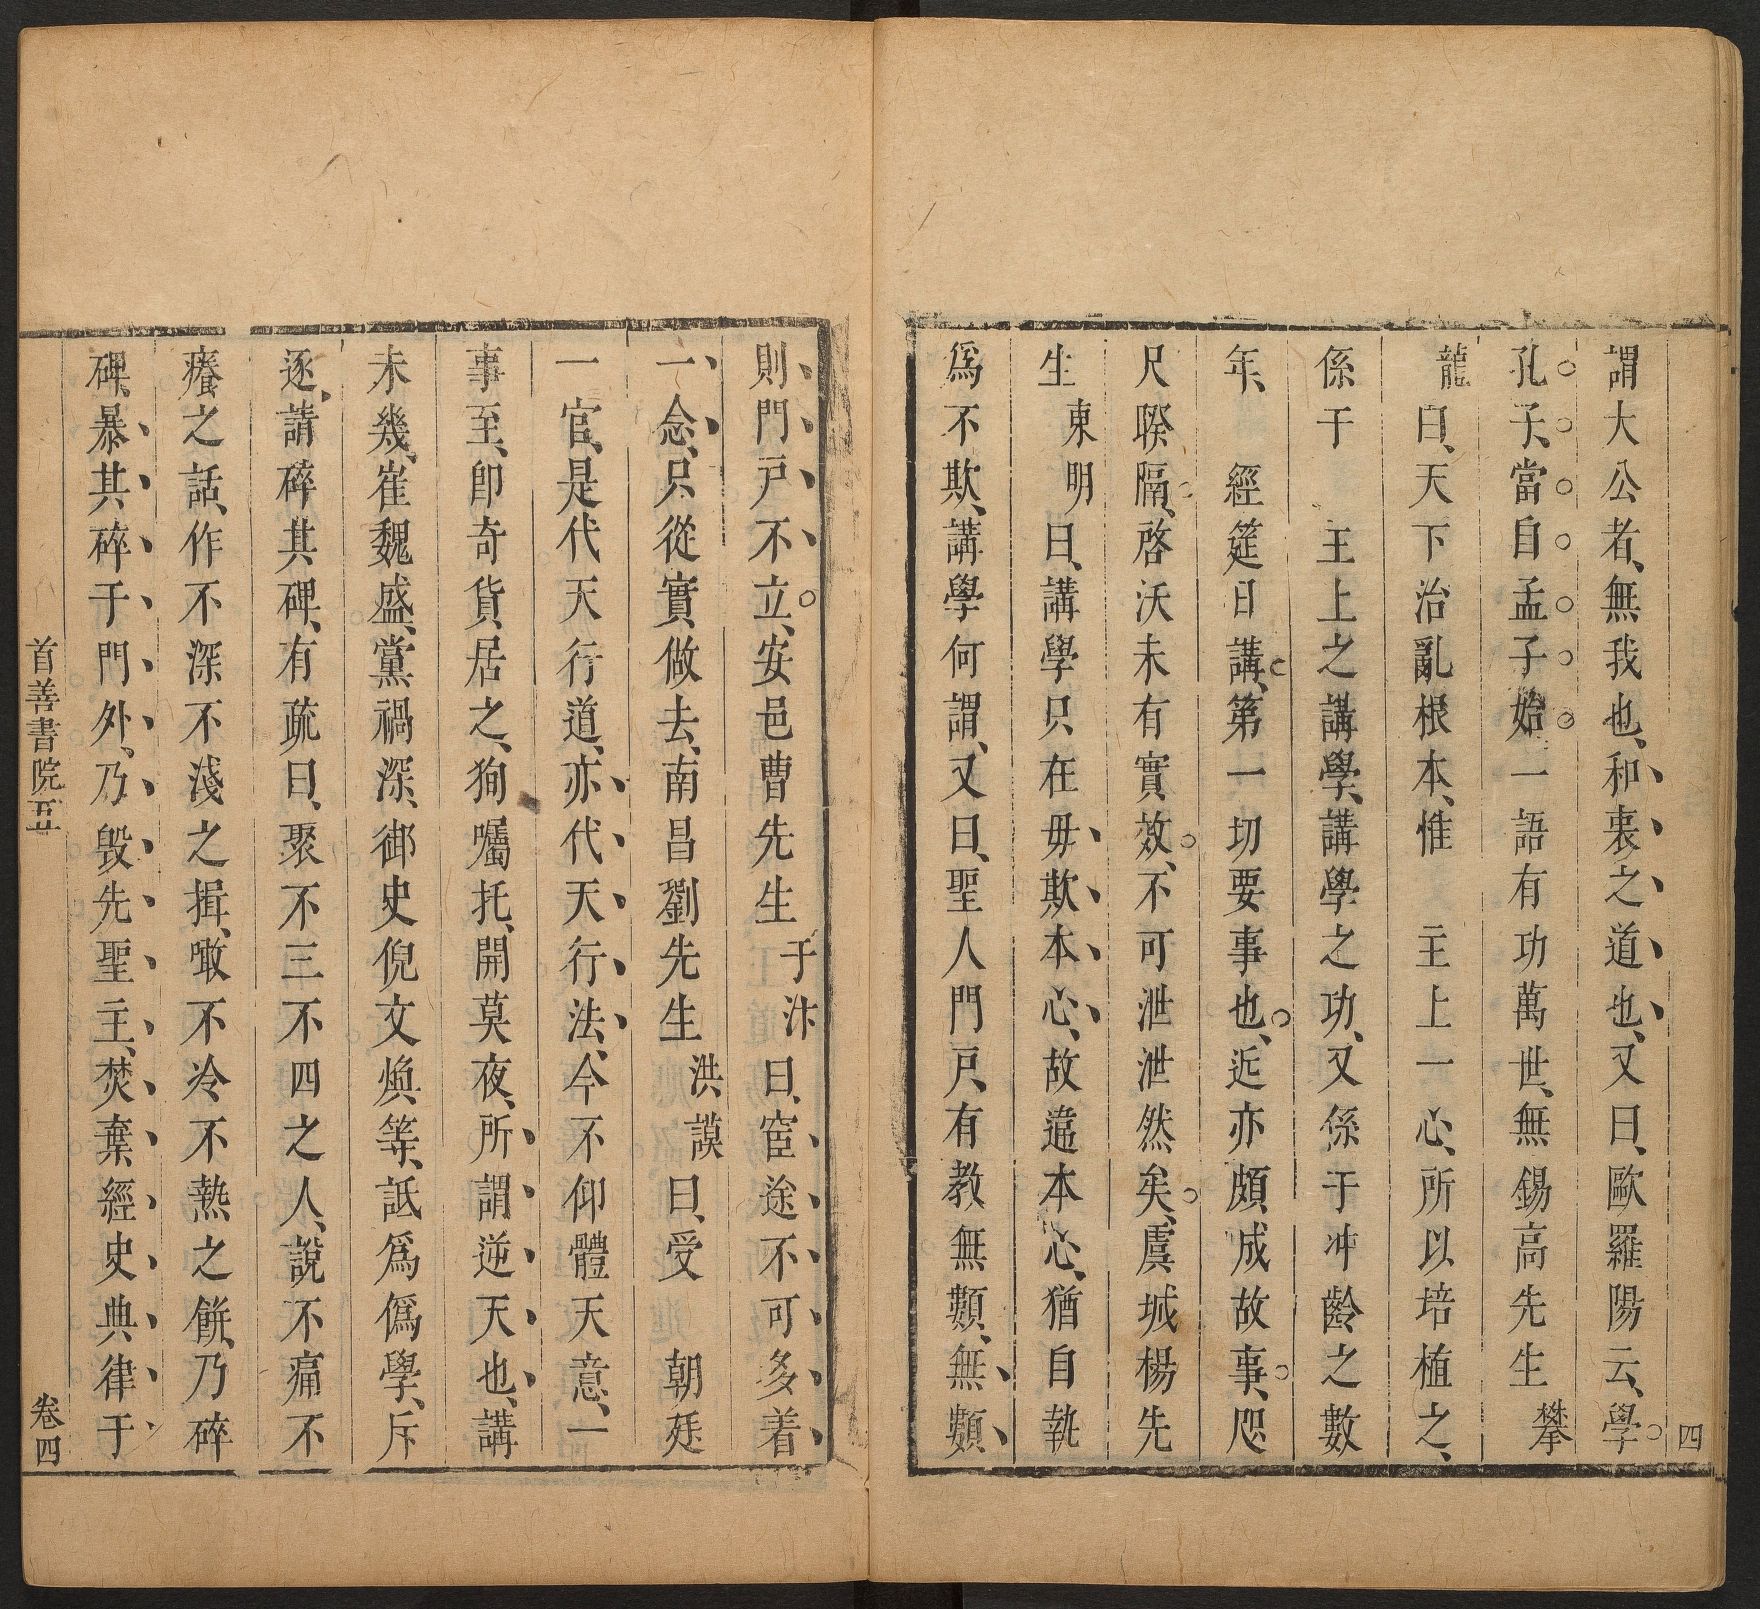 四
謂大公者、無我也、和衷之道也、又曰、歐羅陽云、學
孔子、當自孟子始一語有功萬世、無錫高先生攀
龍曰、天下治亂根本、惟　主上一心、所以培植之、
係于　主上之講學、講學之功、又係于冲齡之數
年、　經筵日講、第一切要事也、近亦頗成故事、咫
尺暌隔、啓沃未有實效、不可泄泄然矣、虞城楊先
生東明曰、講學只在毋欺本心、故違本心、猶自執
爲不欺、講學何謂、又曰、聖人門戶、有教無類、無類、
則門戶不立、安邑曹先生于汴曰、宦途不可多着
一念、只從實做去、南昌劉先生洪謨曰、受　朝廷
一官、是代天行道、亦代天行法、今不仰體天意、一
事至、卽奇貨居之、狥囑托、開莫夜、所謂逆天也、講
未幾、崔魏盛、黨禍深、御史倪文煥等、詆爲僞學、斥
逐、請碎其碑、有疏曰、聚不三不四之人、說不痛不
癢之話、作不深不淺之揖、噉不冷不熱之餅、乃碎
碑、暴其碎于門外、乃毀先聖主、焚棄經史典律于
首善書院五
卷四